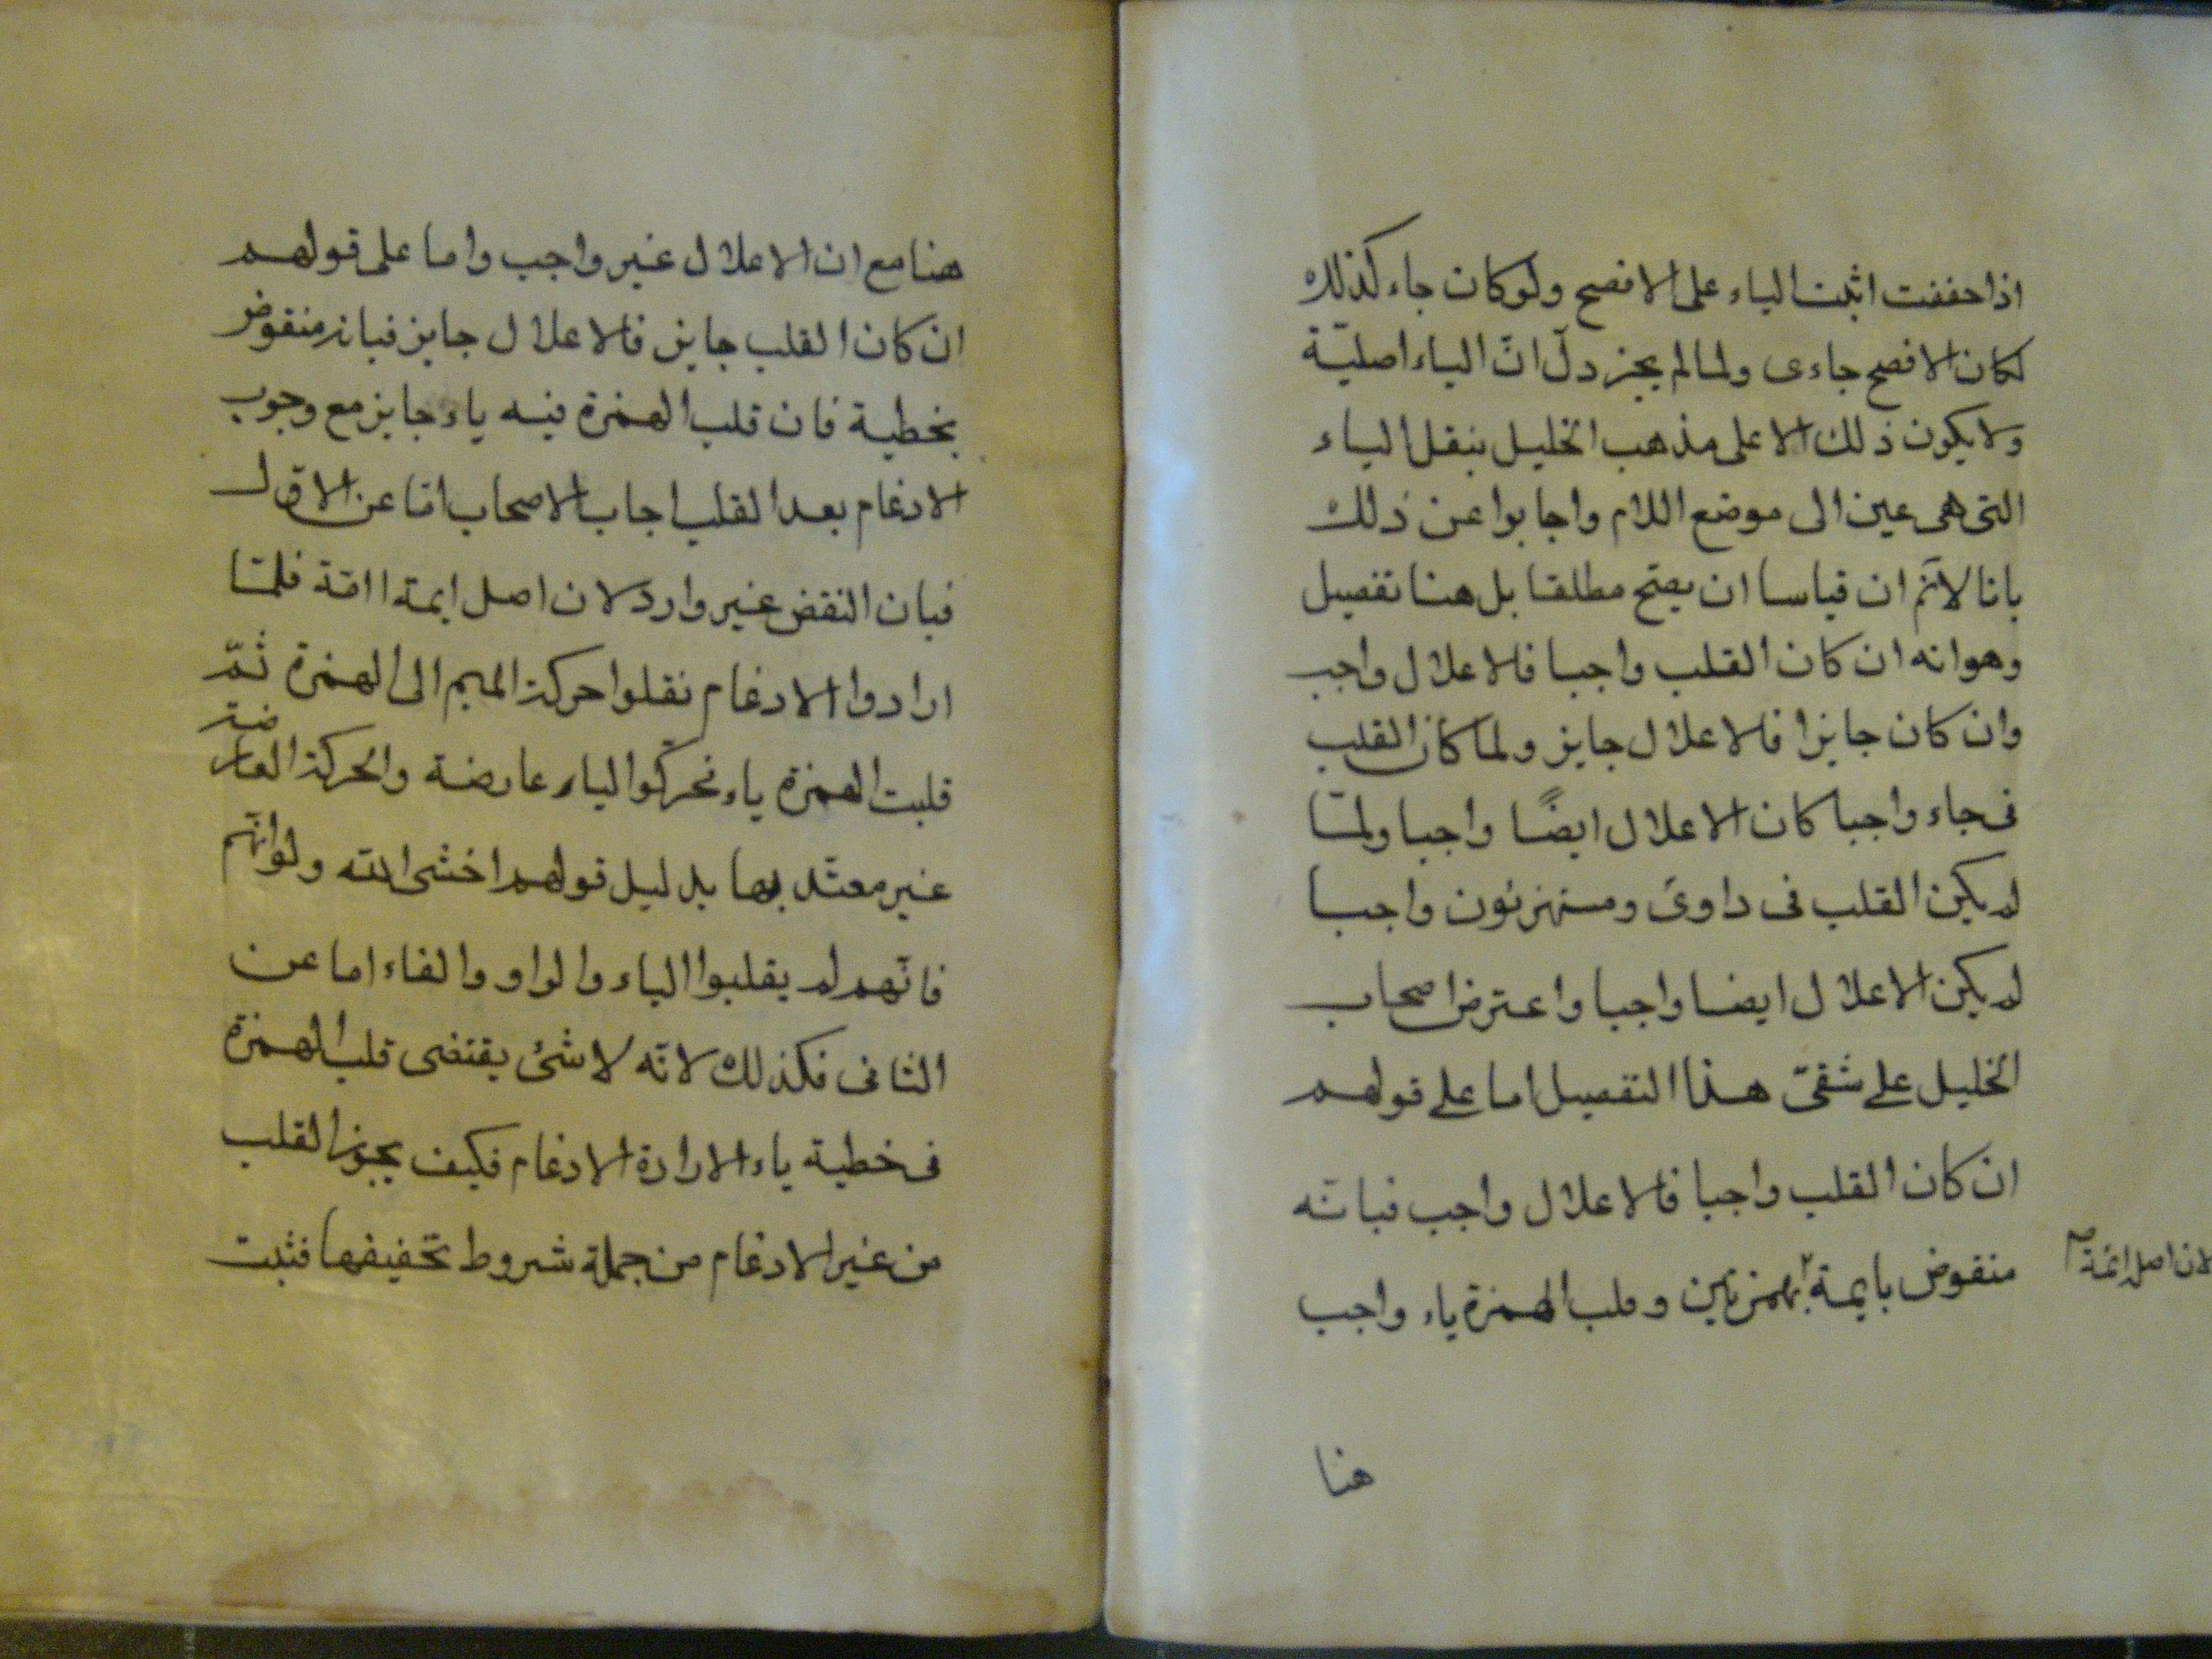 اذا خففت اثبت الياء على الافصح ولو كان جاء كذلك
لكان الافصح جاءى ولما لم يجز دلّ انّ الياء اصليّة
ولا يكون ذلك الا على مذهب الخليل بنقل الياء
التى هى عين الى موضع اللام واجابوا عن ذلك
بانا لانم ان قياسا ان يصح مطلقا بل هنا تفصيل
وهو انه ان كان القلب واجبا فالاعلال واجب
وان كان جايزا فالاعلال جايز ولما كان القلب
فى جاء واجبا كان الاعلال ايضًا واجبا ولمّا
لم يكن القلب فى داوى ومستهزئون واجبا
لم يكن الاعلال ايضا واجبا واعترض اصحاب
الخليل على شقىّ هذا التفصيل اما على قولهم
ان كان القلب واجبا فالاعلال واجب فبانّه
منقوض بايمة بهمزتين وقلب الهمزة ياء واجب
لان اصل ائمة
هنا
هنا مع ان الاعلال غير واجب واما على قولهم
ان كان القلب جايز فالاعلال جايز فبانه منقوض
بخطية فان قلب الهمزة فيه ياء جايز مع وجوب
الادغام بعد القلب اجاب الاصحاب امّا عن الاوّل
فبان النقض غير وارد لان اصل ايمة اامّة فلمّا
ارادوا الادغام نقلوا حركة الميم الى الهمزة ثمّ
قلبت الهمزة ياء فحركوا الياء عارضة والحركة العارضة
غير معتدّ بها بدليل قولهم اخشى الله ولو انّهم
فانّهم لم يقلبوا الياء والواو والفاء اما عن
الثانى فكذلك لانّه لا شئ يقتضى قلب الهمزة
فى خطية ياء الا ارادة الادغام فكيف يجوز القلب
من غير الادغام من جملة شروط تخفيفها فثبت